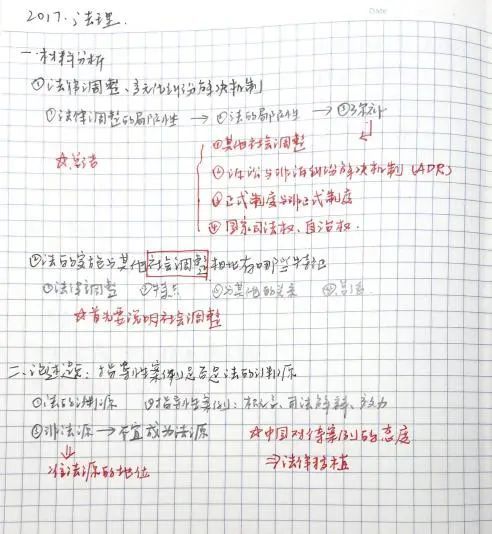 Date
2017.法理.
一.材料分析
①法律调整、多元化纠纷解决机制
①法律调整的局限性 → ②法的局限性 → ③弥补
☆总结
①其他社会调整
②诉讼与非诉纠纷解决机制(ADR)
③正式制度与非正式制度
④国家司法权、自治权.
②法的调整与其他社会调整相比有哪些特征
①法律调整 ②特点 ③与其他的关系 ④总结.
☆首先要说明社会调整
二.论述题:指导性案例是否是法的渊源
①法的渊源 ②指导性案例:概念、司法解释、效力
③非法源 → 不宜成为法源
☆中国对待案例的态度
准法源的地位
⇒法律移植